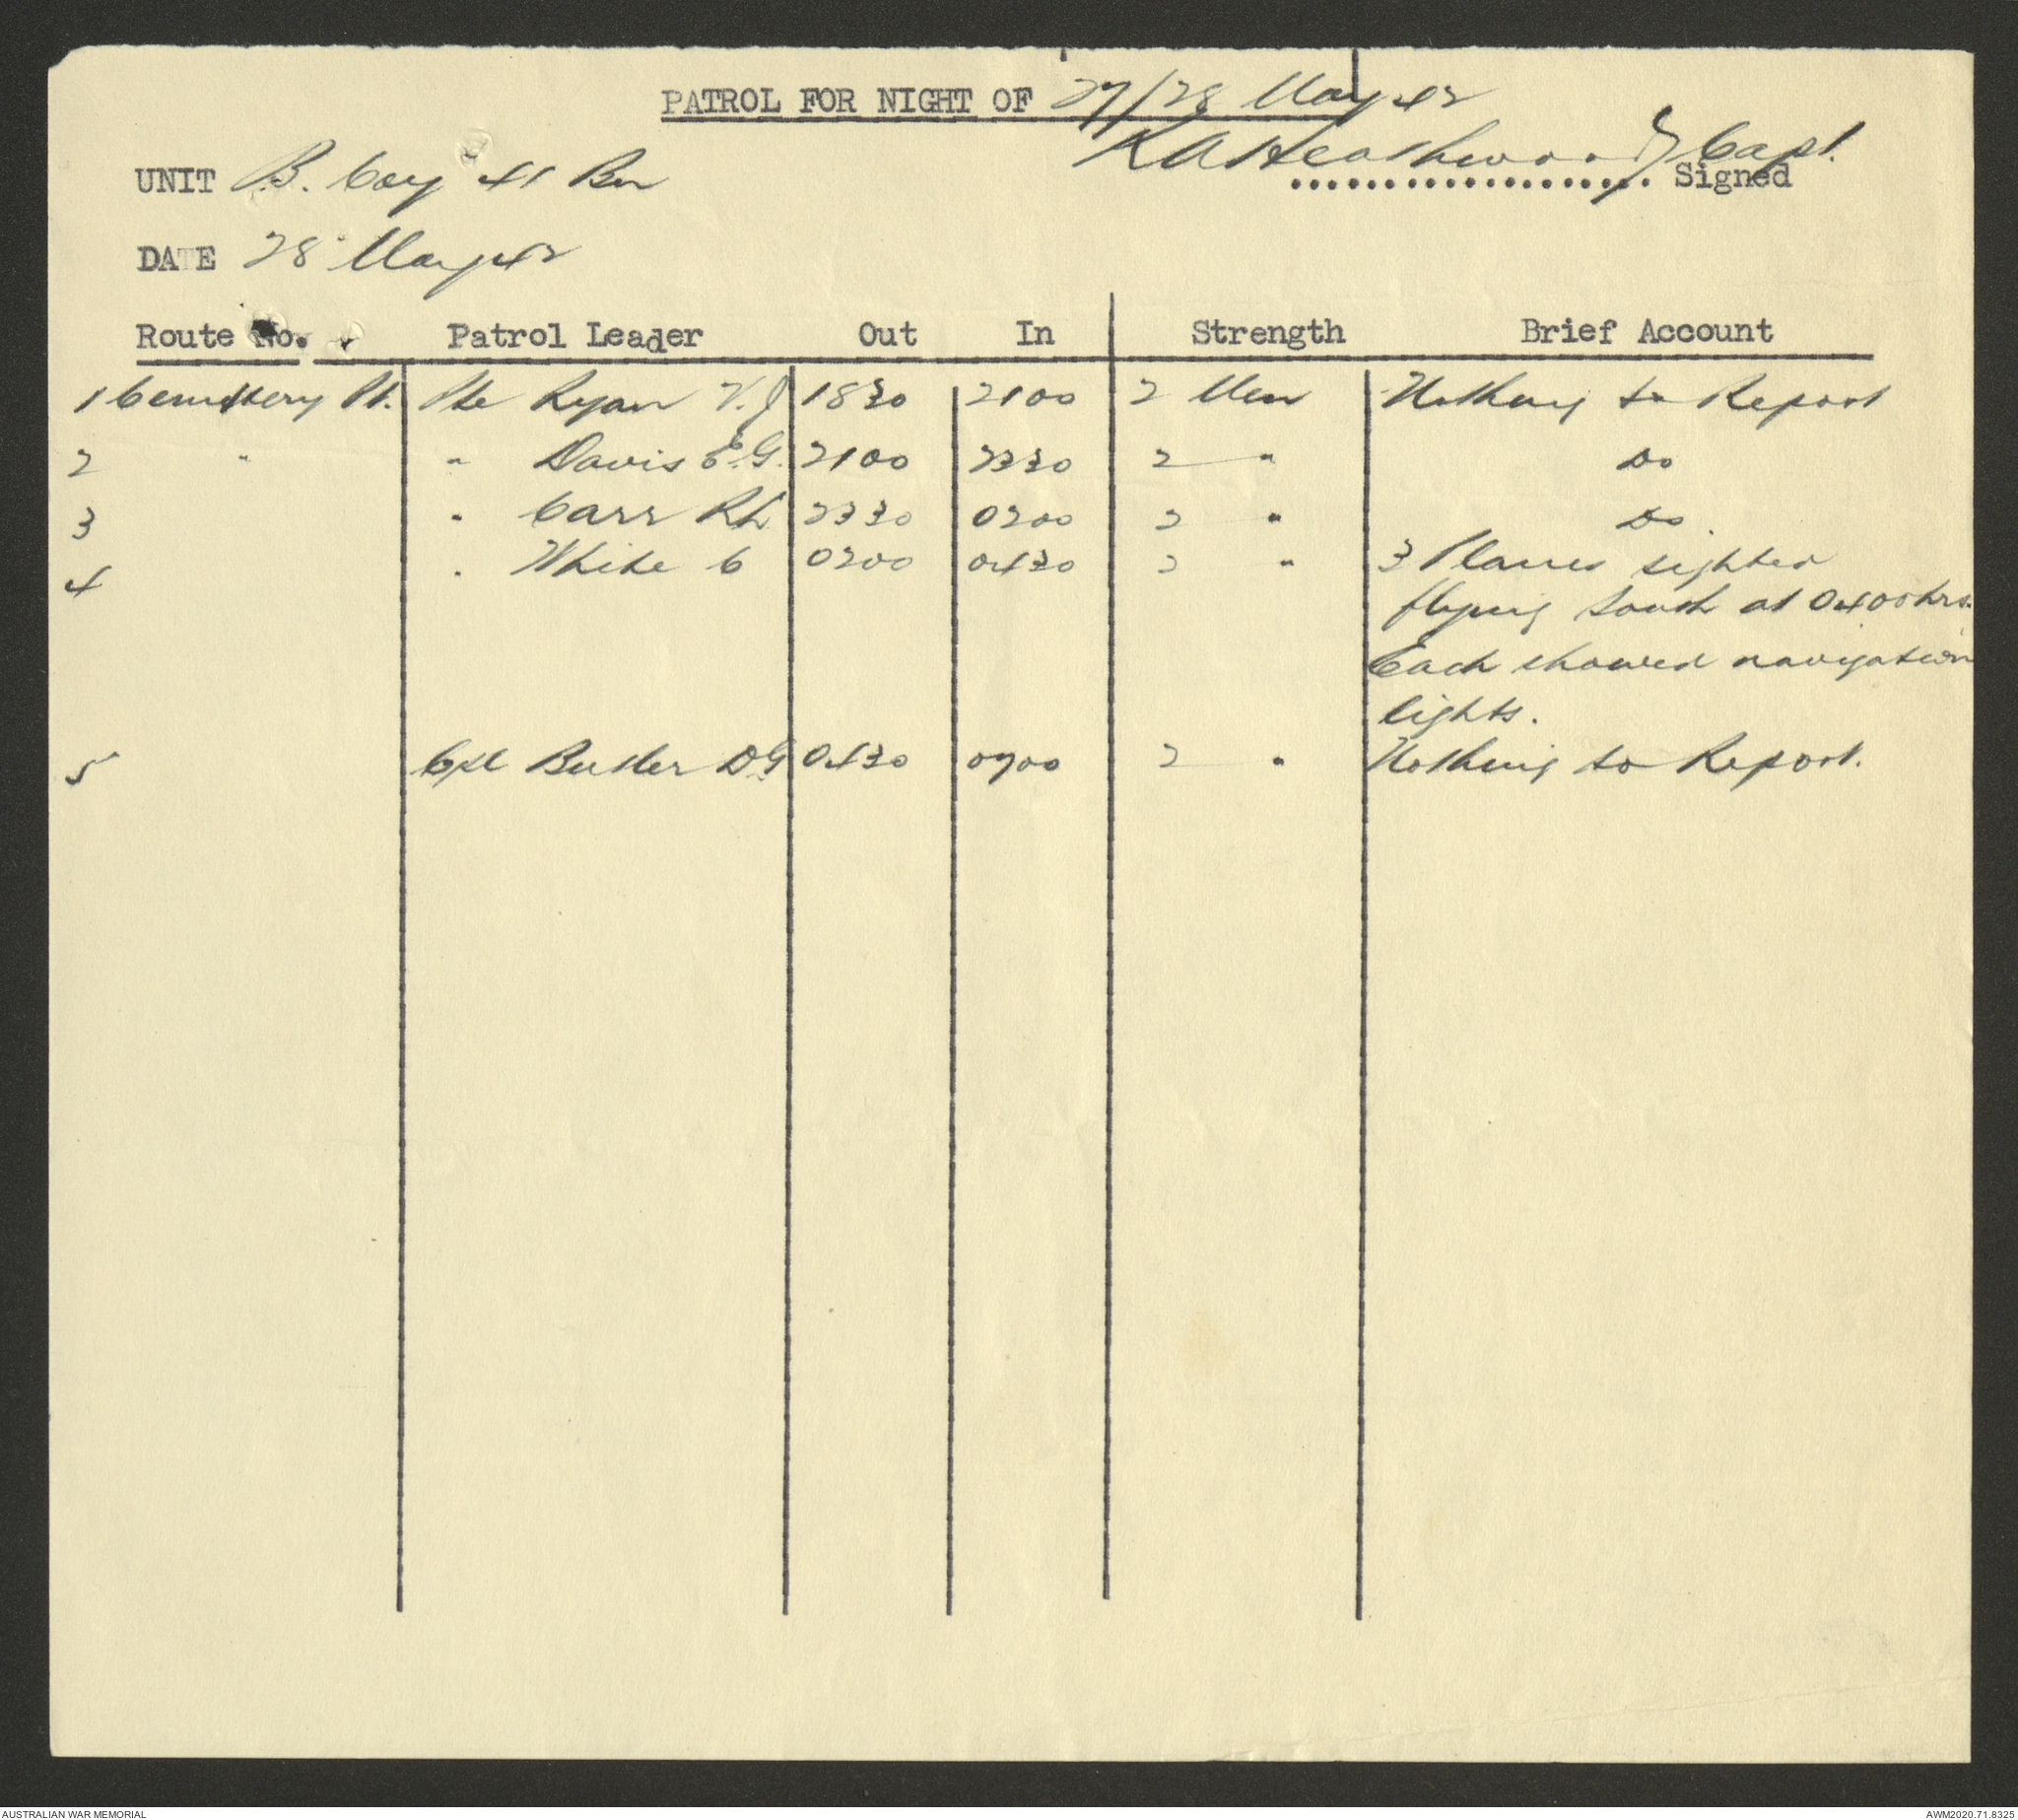 PATROL FOR NIGHT OF 27/28 May 42
UNIT B. Coy 41 Bn
K A Heathwood Capt.
.................. Signed
DATE 28 May 42
Route No. Patrol Leader Out In Strength Brief Account
1 Cemetery Pt. Pte Ryan V.J 1830 2100 2 Men Nothing to Report
2 " " Davis E.G. 2100 2330 2 " Do
3 " Carr R L 2330 0200 2 " Do.
4 " White C 0200 0430 2 " 3 Planes sighted
flying South at 0400hrs.
Each showed navigation
lights.
5 Cpl Butler D.G 0430 0700 2 " Nothing to Report.
AUSTRALIAN WAR MEMORIAL AWM2020.71.8325